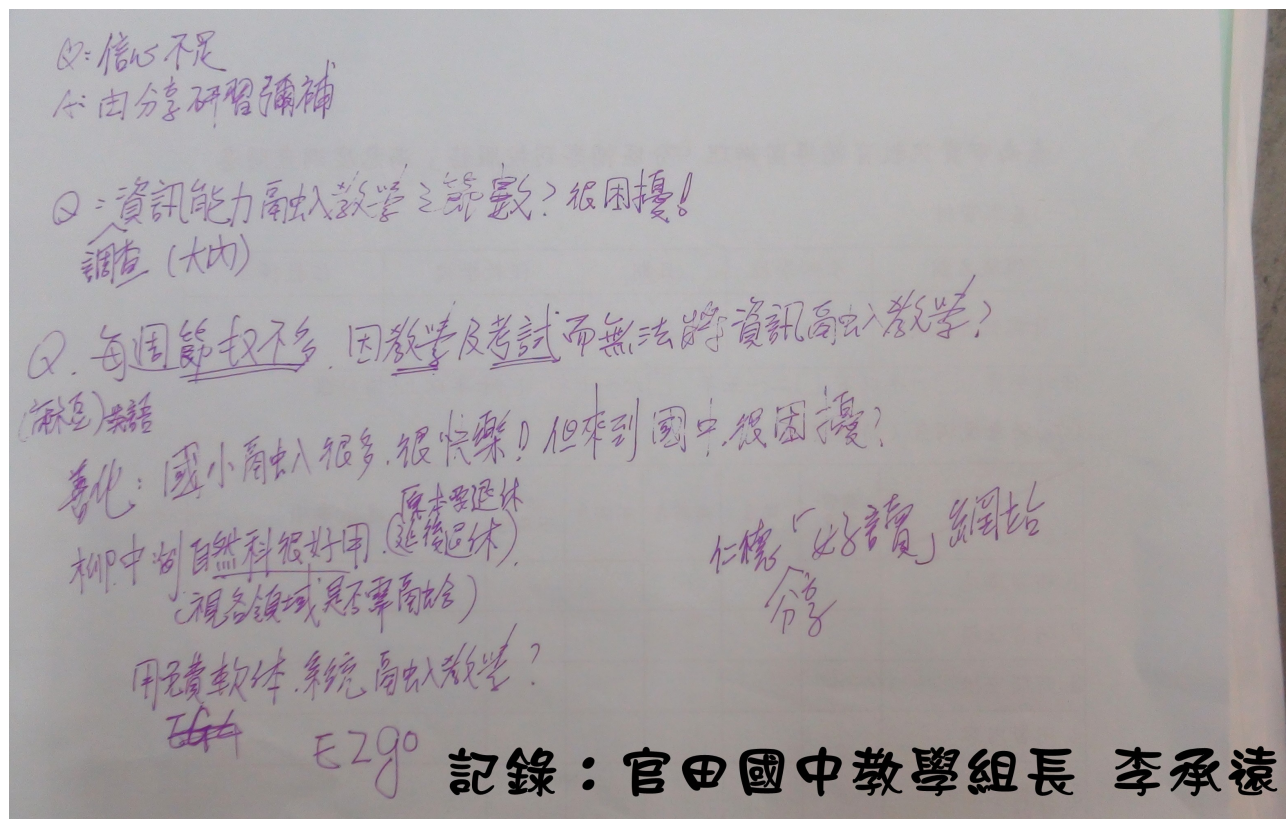 Q:信心不足
A:由分享研習彌補
Q:資訊能力融入教學之節數?很困擾!
調查(大內)
Q.每週節數不多.因教學及考試而無法將資訊融入教學?
(麻豆)英語
善化:國小融入很多.很快樂!但來到國中.很困擾?
原本要退休
柳中:自然科很好用.(延後退休).
(視各領域是否需融合)
仁德「好讀」網站
分享
用免費軟体.系統融入教學?
EZgo
記錄:官田國中教學組長 李承遠